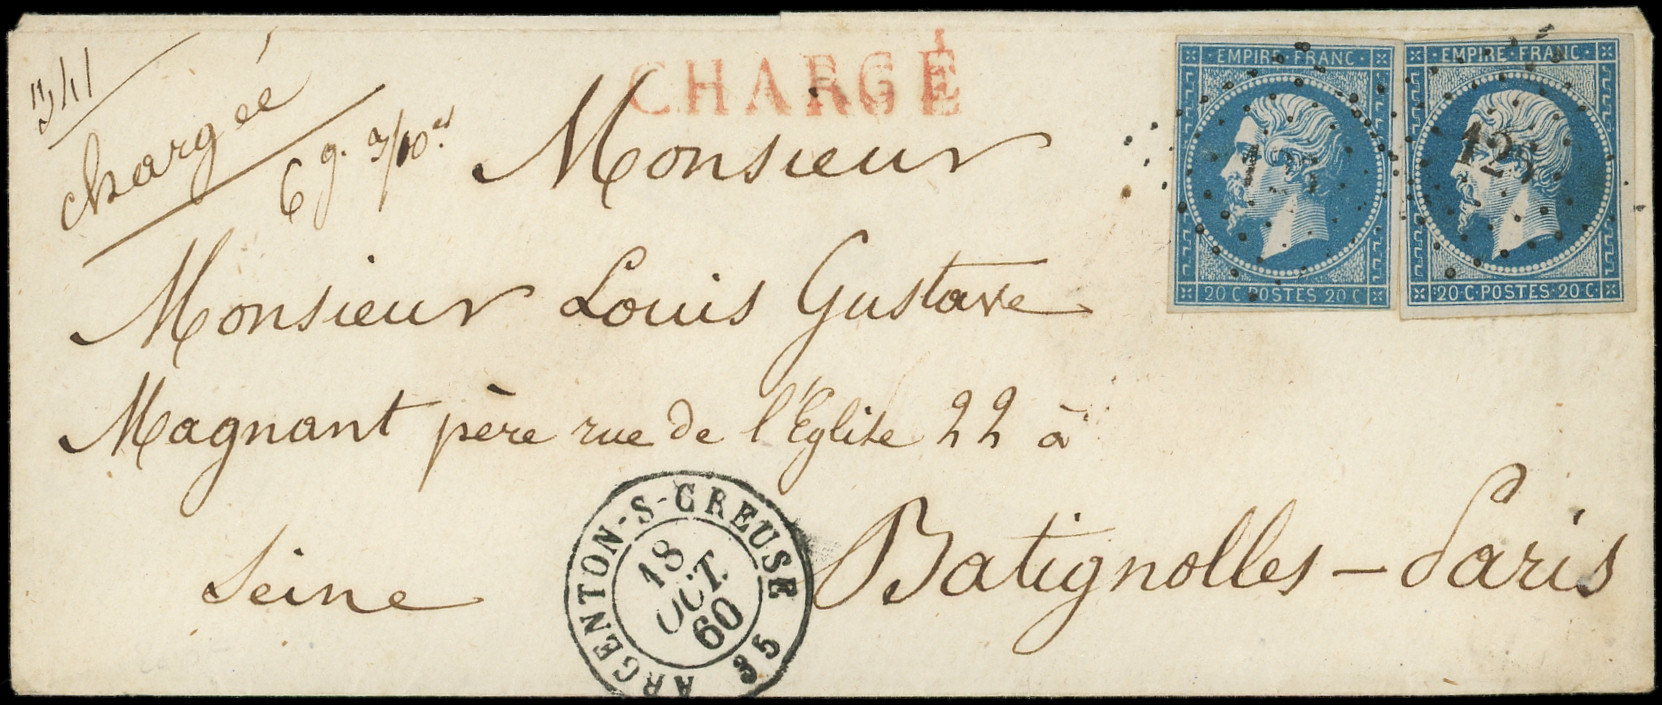 chargée
6 g. 3/10es
CHARGÉ
EMPIRE FRANC
20 C POSTES 20 C
EMPIRE FRANC
125
20 C POSTES 20 C
Monsieur
Monsieur Louis Gustave
Magnant père rue de l'Eglise 22 à
Batignolles – Paris
Seine
ARGENTON-S-CREUSE
18
OCT.
60
35